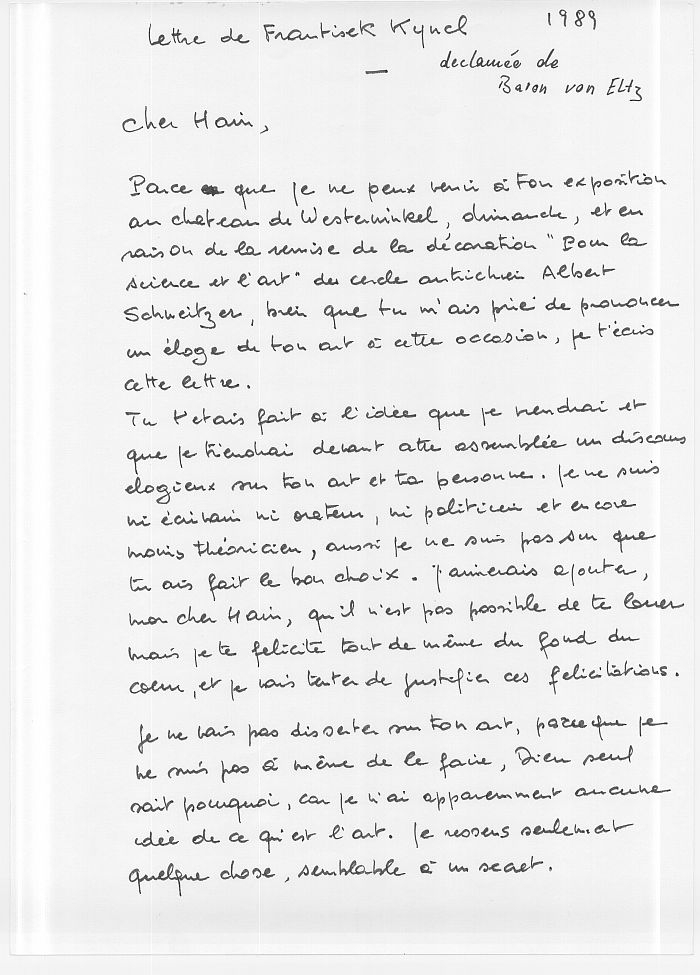 Lettre de Frantisek Kyncl 1989
declamée de
Baron von Eltz
Cher Hain,
Parce que je ne peux venir à ton exposition
au chateau de Westerwinkel, dimanche, et en
raison de la remise de la décoration "Pour la
science et l'art" du cercle autrichien Albert
Schweitzer, bien que tu m'ais prié de prononcer
un éloge de ton art à cette occasion, je t'écris
cette lettre.
Tu t'etais fait à l'idée que je viendrai et
que je tiendrai devant cette assemblée un discours
elogieux sur ton art et ta personne. Je ne suis
ni écrivain ni orateur, ni politicien et encore
moins théoricien, aussi je ne suis pas sur que
tu ais fait le bon choix. J'aimerais ajouter,
mon cher Hain, qu'il n'est pas possible de te louer
mais je te felicite tout de même du fond du
coeur, et je vais tenter de justifier ces felicitations.
Je ne vais pas disserter sur ton art, parce que je
ne suis pas à même de le faire, Dieu seul
sait pourquoi, car je n'ai apparemment aucune
idée de ce qu'est l'art. Je ressens seulement
quelque chose, semblable à un secret.